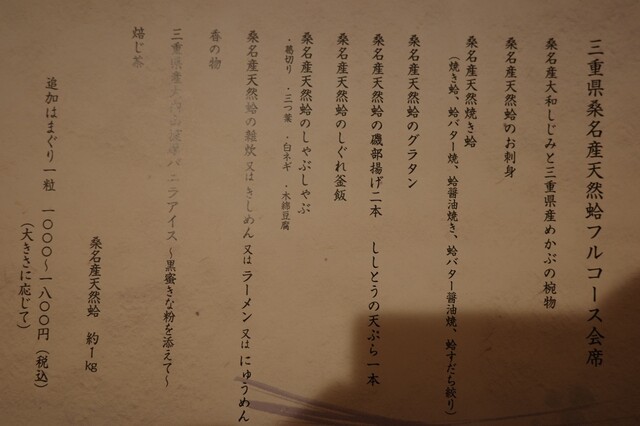 三重県桑名産天然蛤フルコース会席
桑名産大和しじみと三重県産めかぶの椀物
桑名産天然蛤のお刺身
桑名産天然焼き蛤
(焼き蛤、蛤バター焼、蛤醤油焼き、蛤バター醤油焼、蛤すだち絞り)
桑名産天然蛤のグラタン
桑名産天然蛤の磯部揚げ二本 ししとうの天ぷら一本
桑名産天然蛤のしぐれ釜飯
桑名産天然蛤のしゃぶしゃぶ
・葛切り ・三つ葉 ・白ネギ ・木綿豆腐
桑名産天然蛤の雑炊 又は きしめん 又は ラーメン 又は にゅうめん
香の物
三重県産大内山酪農バニラアイス ~黒蜜きな粉を添えて~
焙じ茶
桑名産天然蛤 約1kg
追加はまぐり一粒 一〇〇〇~一八〇〇円(税込)
(大きさに応じて)